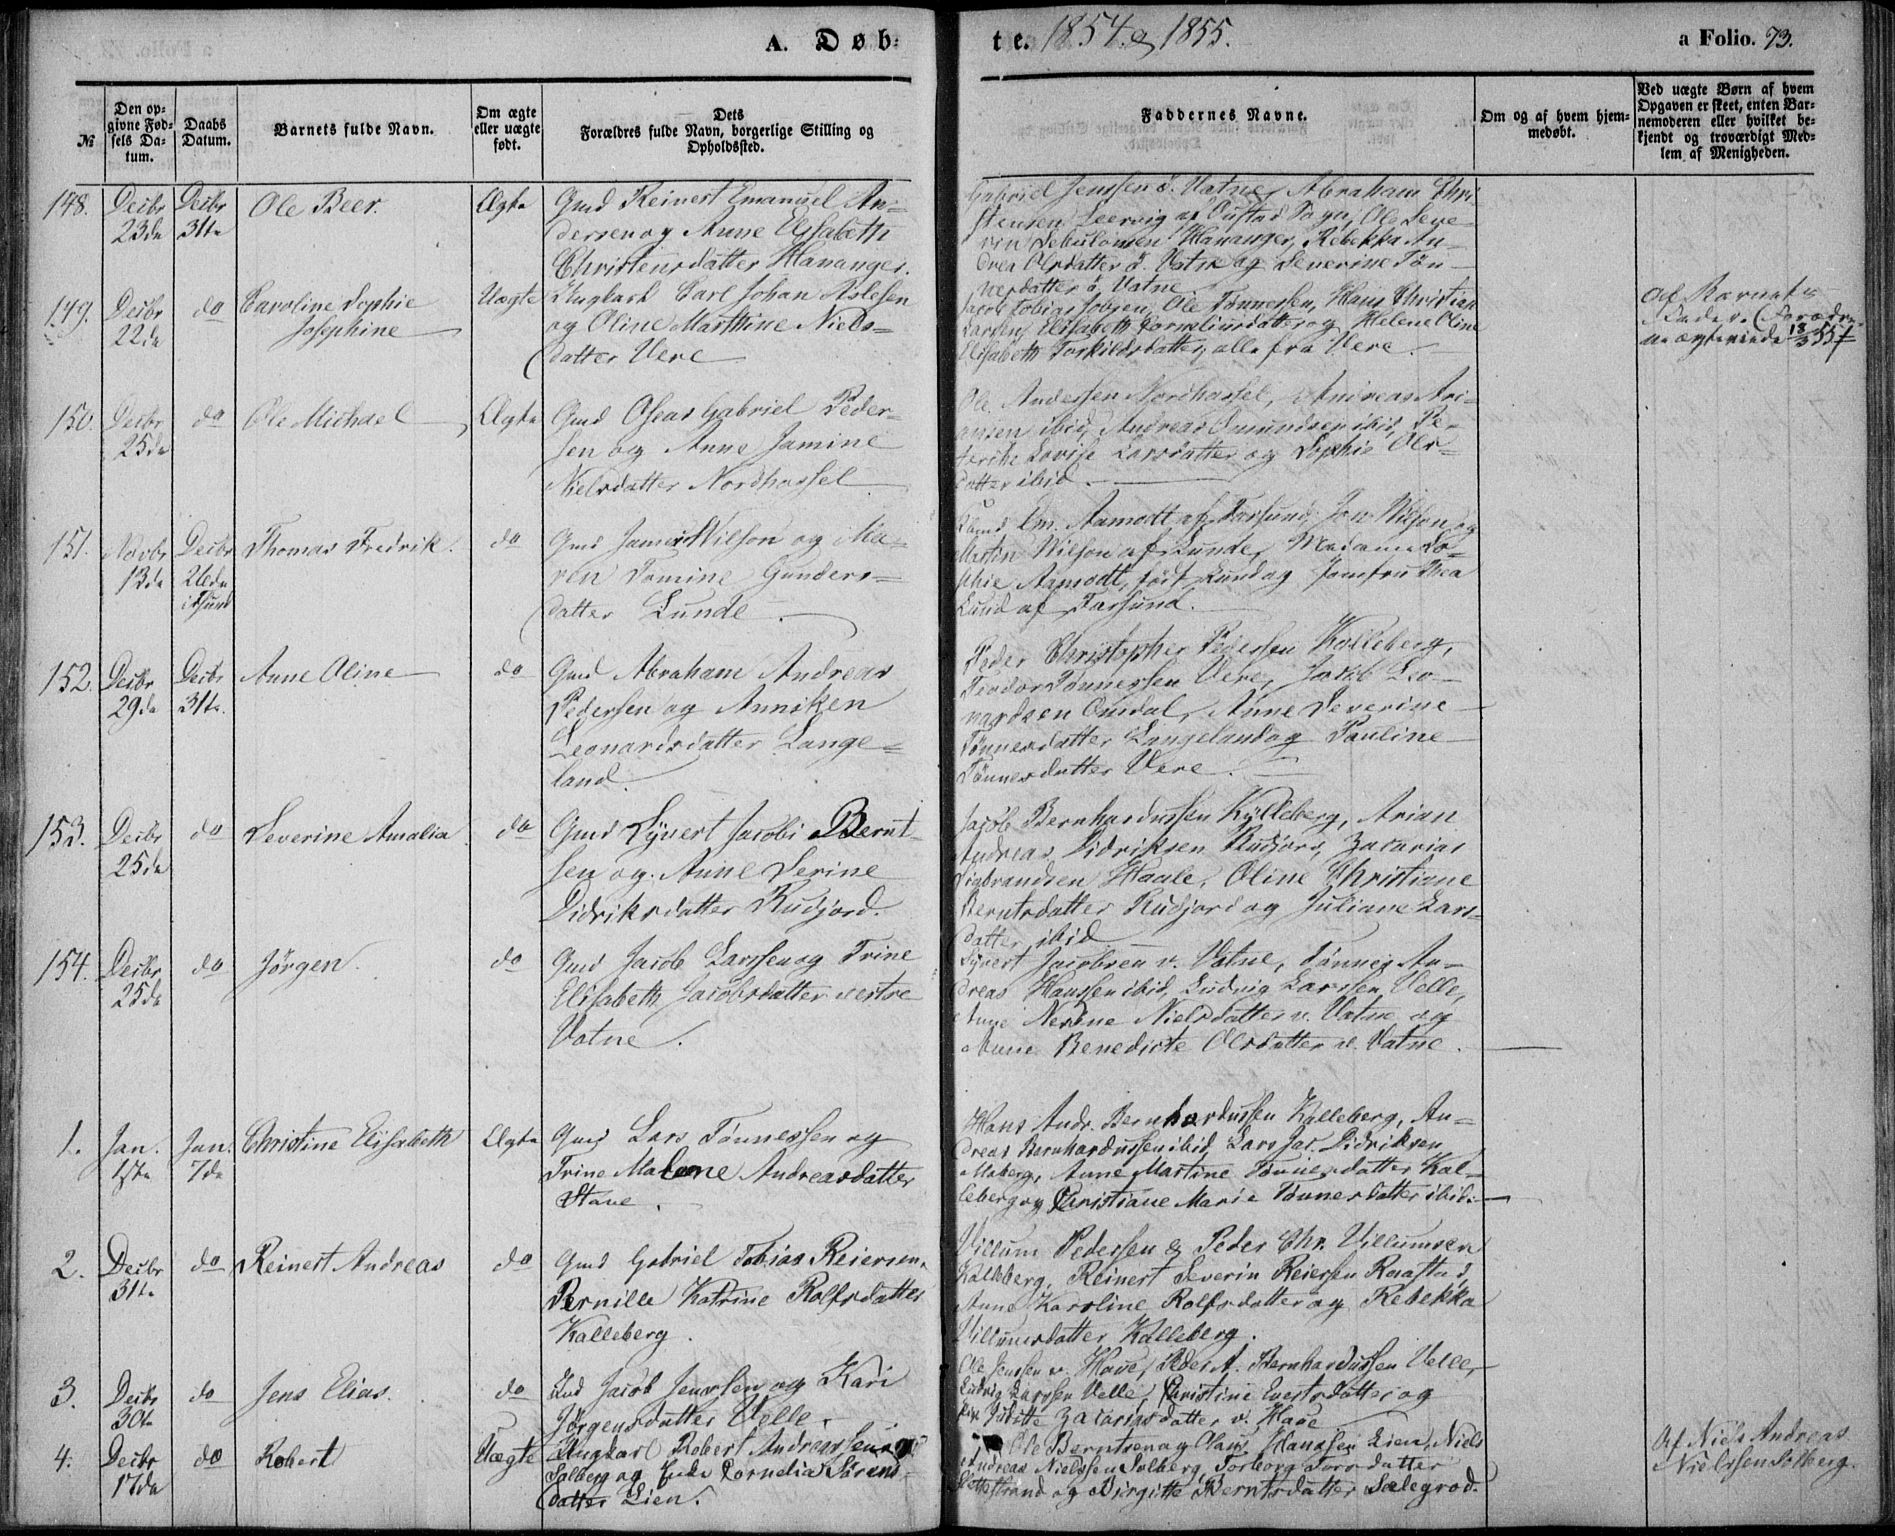 A. Døb-
te. 1854 og 1855.
a Folio. 73.
№
Den op-
givne Fød-
sels Da-
tum.
Daabs
Datum.
Barnets fulde Navn.
Om ægte
eller uægte
født.
Dets
Forældres fulde Navn, borgerlige Stilling og
Opholdssted.
Faddernes Navne.
Om og af hvem hjem-
medøbt.
Ved uægte Børn af hvem
Opgaven er skeet, enten Bar-
nemoderen eller hvilket be-
kjendt og troværdigt Med-
lem af Menigheden.
148.
Decbr
23de
Decbr
31te
Ole Beer.
Ægte
Gmd Reinert Emanuel An-
dersen og Anne Elisabeth
Christensdatter Hananger.
Gabriel Jenssen ö. Vatne, Abraham Chri-
stensen Leervig af Sogn, Ole Seve-
rin Sebulonsen Hananger, Rebekka An-
drea Olsdatter ö. Vatne og Severine Tön-
nesdatter ö. Vatne.
149.
Decbr
22de
do
Caroline Sophie
Josephine
Uægte
Ungkarl Carl Johan Aslesen
og Oline Marthine Niels-
datter Vere
Jacob Tobias Jobsen, Ole Tønnessen, Hans Christian
Larsen, Elisabeth Corneliusdatter og Helene Oline
Elisabeth Torkildsdatter, alle fra Vere.
Af Barnets
Fader. (Foræld-
ne ægteviede 18/3 55)
150.
Decbr
25de
do
Ole Michael
Ægte
Gmd Oseas Gabriel Peder-
sen og Anne Jamine
Nielsdatter Nordhassel
Ole Andersen Nordhassel, Andreas Ari-
ansen ibid, Andreas Omundsen ibid, Pe-
Lovise Larsdatter og Sophie Ols-
datter ibid.
151.
Novbr
13de
Decbr
26de
i Fsund
Thomas Fredrik.
do
Gmd James Wilson og Ma-
ren Tomine Gunders-
datter Lunde.
Em. Aamodt af Farsund, Jon Wilson og
Martin Wilson af Lunde, Madame So-
phie Aamodt, født Lund og Jomfru Thea
Lund af Farsund.
152.
Decbr
29de
Decbr
31te.
Anne Oline
do
Gmd Abraham Andreas
Pedersen og Anniken
Leonardsdatter Lange-
land.
Peder Christopher Pedersen Kalleberg,
Teodor Tønnessen Vere, Jacob Leo-
nardsen Omdal, Anne Severine
Tönnesdatter Langeland og Pauline
Tönnesdatter Vere.
153.
Decbr
25de
do
Severine Amalia
do
Gmd Syvert Jacobi Bernt-
sen og Anne Serine
Didriksdatter Rudjord.
Jacob Bernhardussen Kylleberg, Arian
Andreas Didriksen Rudjord, Zacarias
Sigbrandsen Haale, Oline Christiane
Berntsdatter Rudjord og Juliane Lars-
datter ibid
154.
Decbr
25de
do
Jørgen.
do
Gmd Jacob Larssen og Trine
Elisabeth Jacobsdatter vestre
Vatne.
Syvert Jacobsen v. Vatne, Tönnes An-
dreas Hanssen ibid, Ludvig Larssen Velle,
Nerene Nielsdatter v. Vatne og
Anne Benedicte Olsdatter v. Vatne.
1.
Jan.
1ste
Jan.
7de
Christine Elisabeth
Ægte
Gmd Lars Tönnessen og
Trine Malene Andreasdatter
Stave.
Hans Andr. Bernhardussen Kalleberg, An-
dreas Bernhardussen ibid, Lars Jac. Didriksen
Moberg, Anne Martine Tönnesdatter Kal-
leberg og Christiane Marie Tönnesdatter ibid.
2.
Decbr
31te
do
Reinert Andreas
do
Gmd Gabriel Tobias Reiersen,
Pernille Katrine Rolfsdatter
Kalleberg.
Villum Pedersen & Peder Chr. Villumsen
Kalleberg, Reinert Severin Reiersen Raastad,
Anne Karoline Rolfsdatter og Rebekka
Villumsdatter Kalleberg.
3.
Decbr
30te
do
Jens Elias.
do
Lnd Jacob Jenssen og Kari
Jørgensdatter Velle.
Ole Jenssen v. Haue, Peder A. Bernhardussen Velle,
Ludvig Larssen Velle, Christine Evertsdatter og
Pige Julitte Zacariasdatter v. Haue
4.
Decbr
17de
do
Robert
Uægte
Ungkarl Robert Andreassen
Solberg og Enke Cornelia Sörens-
datter Lien.
Ole Berntsen og Hans Hanssen Lien, Niels
Andreas Nielssen Solberg, Torborg Torsdatter
Slettestrand og Birgitte Berntsdatter Sælegrod.
Af Niels Andreas
Nielssen Solberg.